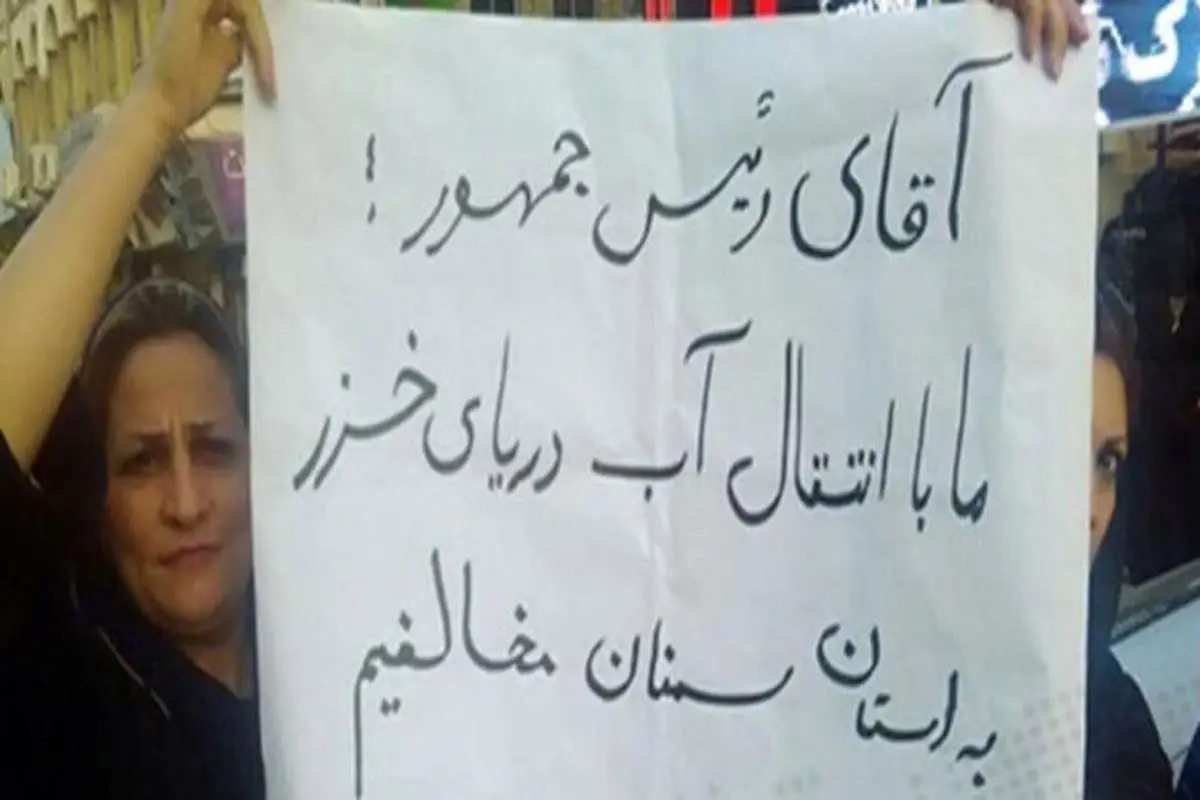 آقای رئیس جمهور !
ما با انتقال آب دریای خزر
به استان سمنان مخالفیم